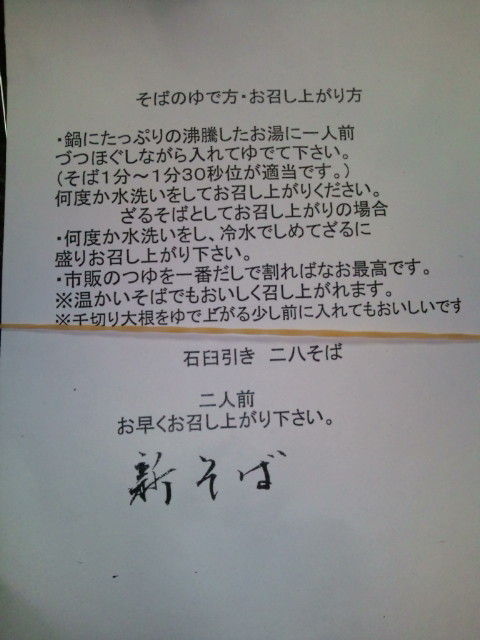 そばのゆで方・お召し上がり方
・鍋にたっぷりの沸騰したお湯に一人前
づつほぐしながら入れてゆでて下さい。
(そば１分～１分３０秒位が適当です。)
何度か水洗いをしてお召し上がりください。
ざるそばとしてお召し上がりの場合
・何度か水洗いをし、冷水でしめてざるに
盛りお召し上がり下さい。
・市販のつゆを一番だしで割ればなお最高です。
※温かいそばでもおいしく召し上がれます。
※千切り大根をゆで上がる少し前に入れてもおいしいです
石臼引き 二八そば
二人前
お早くお召し上がり下さい。
新そば